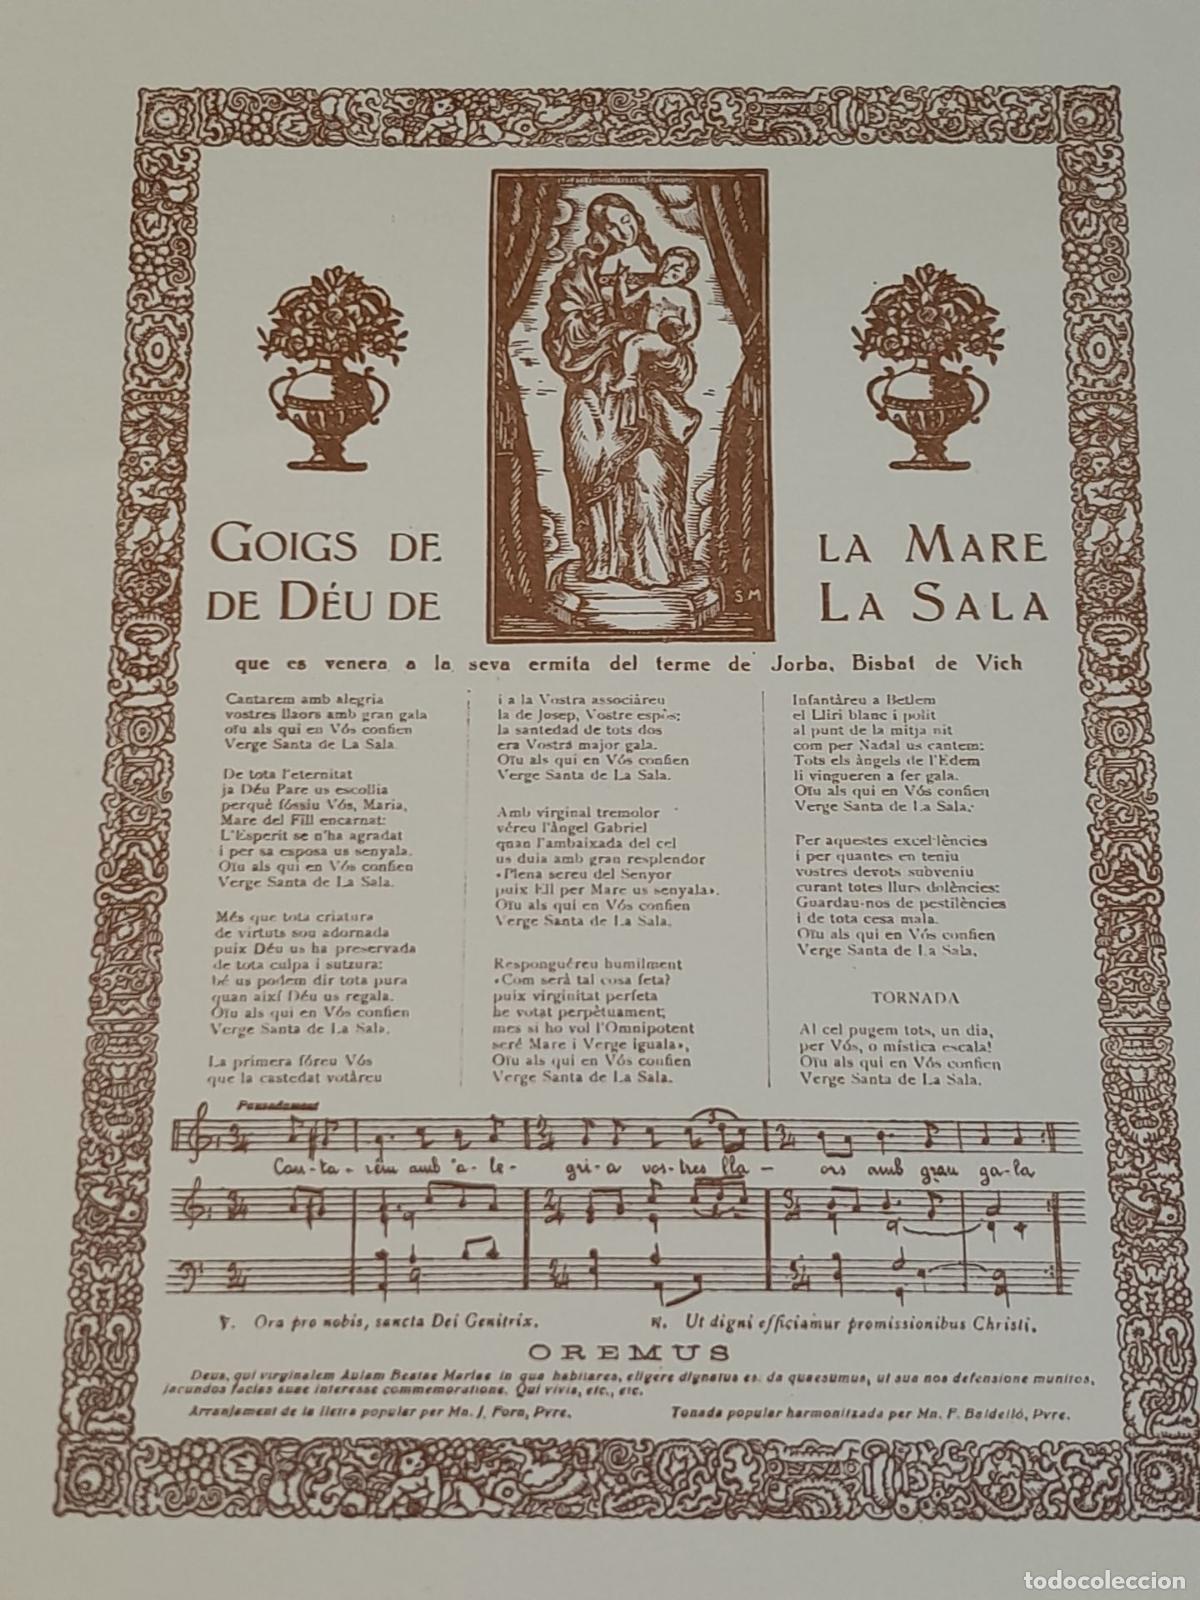 GOIGS DE LA MARE
DE DÉU DE LA SALA
SM
que es venera a la seva ermita del terme de Jorba, Bisbat de Vich
Cantarem amb alegria
vostres llaors amb gran gala
oïu als qui en Vós confien
Verge Santa de La Sala.
De tota l'eternitat
ja Déu Pare us escollia
perquè fóssiu Vós, Maria,
Mare del Fill encarnat:
L'Esperit se n'ha agradat
i per sa esposa us senyala.
Oïu als qui en Vós confien
Verge Santa de La Sala.
Més que tota criatura
de virtuts sou adornada
puix Déu us ha preservada
de tota culpa i sutzura:
bé us podem dir tota pura
quan així Déu us regala.
Oïu als qui en Vós confien
Verge Santa de La Sala.
La primera fóreu Vós
que la castedat votàreu
i a la Vostra associàreu
la de Josep, Vostre espòs;
la santedat de tots dos
era Vostra major gala.
Oïu als qui en Vós confien
Verge Santa de La Sala.
Amb virginal tremolor
véreu l'Àngel Gabriel
quan l'ambaixada del cel
us duia amb gran resplendor
«Plena sereu del Senyor
puix Ell per Mare us senyala».
Oïu als qui en Vós confien
Verge Santa de La Sala.
Responguéreu humilment
«Com serà tal cosa feta?
puix virginitat perfeta
he votat perpètuament;
mes si ho vol l'Omnipotent
seré Mare i Verge iguala»,
Oïu als qui en Vós confien
Verge Santa de La Sala.
Infantàreu a Betlem
el Lliri blanc i polit
al punt de la mitja nit
com per Nadal us cantem:
Tots els àngels de l'Edem
li vingueren a fer gala.
Oïu als qui en Vós confien
Verge Santa de La Sala.
Per aquestes excel·lències
i per quantes en teniu
vostres devots subveniu
curant totes llurs dolències:
Guardau-nos de pestilències
i de tota cesa mala.
Oïu als qui en Vós confien
Verge Santa de La Sala.
TORNADA
Al cel pugem tots, un dia,
per Vós, o mística escala!
Oïu als qui en Vós confien
Verge Santa de La Sala.
Pausadament
Can-ta-rem amb a-le- gri-a vos-tres lla - ors amb gran ga-la
℣. Ora pro nobis, sancta Dei Genitrix. ℟. Ut digni efficiamur promissionibus Christi.
OREMUS
Deus, qui virginalem Aulam Beatae Mariae in qua habitares, eligere dignatus es. da quaesumus, ut sua nos defensione munitos,
jucundos facias suae interesse commemoratione. Qui vivis, etc., etc.
Arranjament de la lletra popular per Mn. J. Forn, Pvre. Tonada popular harmonitzada per Mn. F. Baldelló, Pvre.
todocoleccion